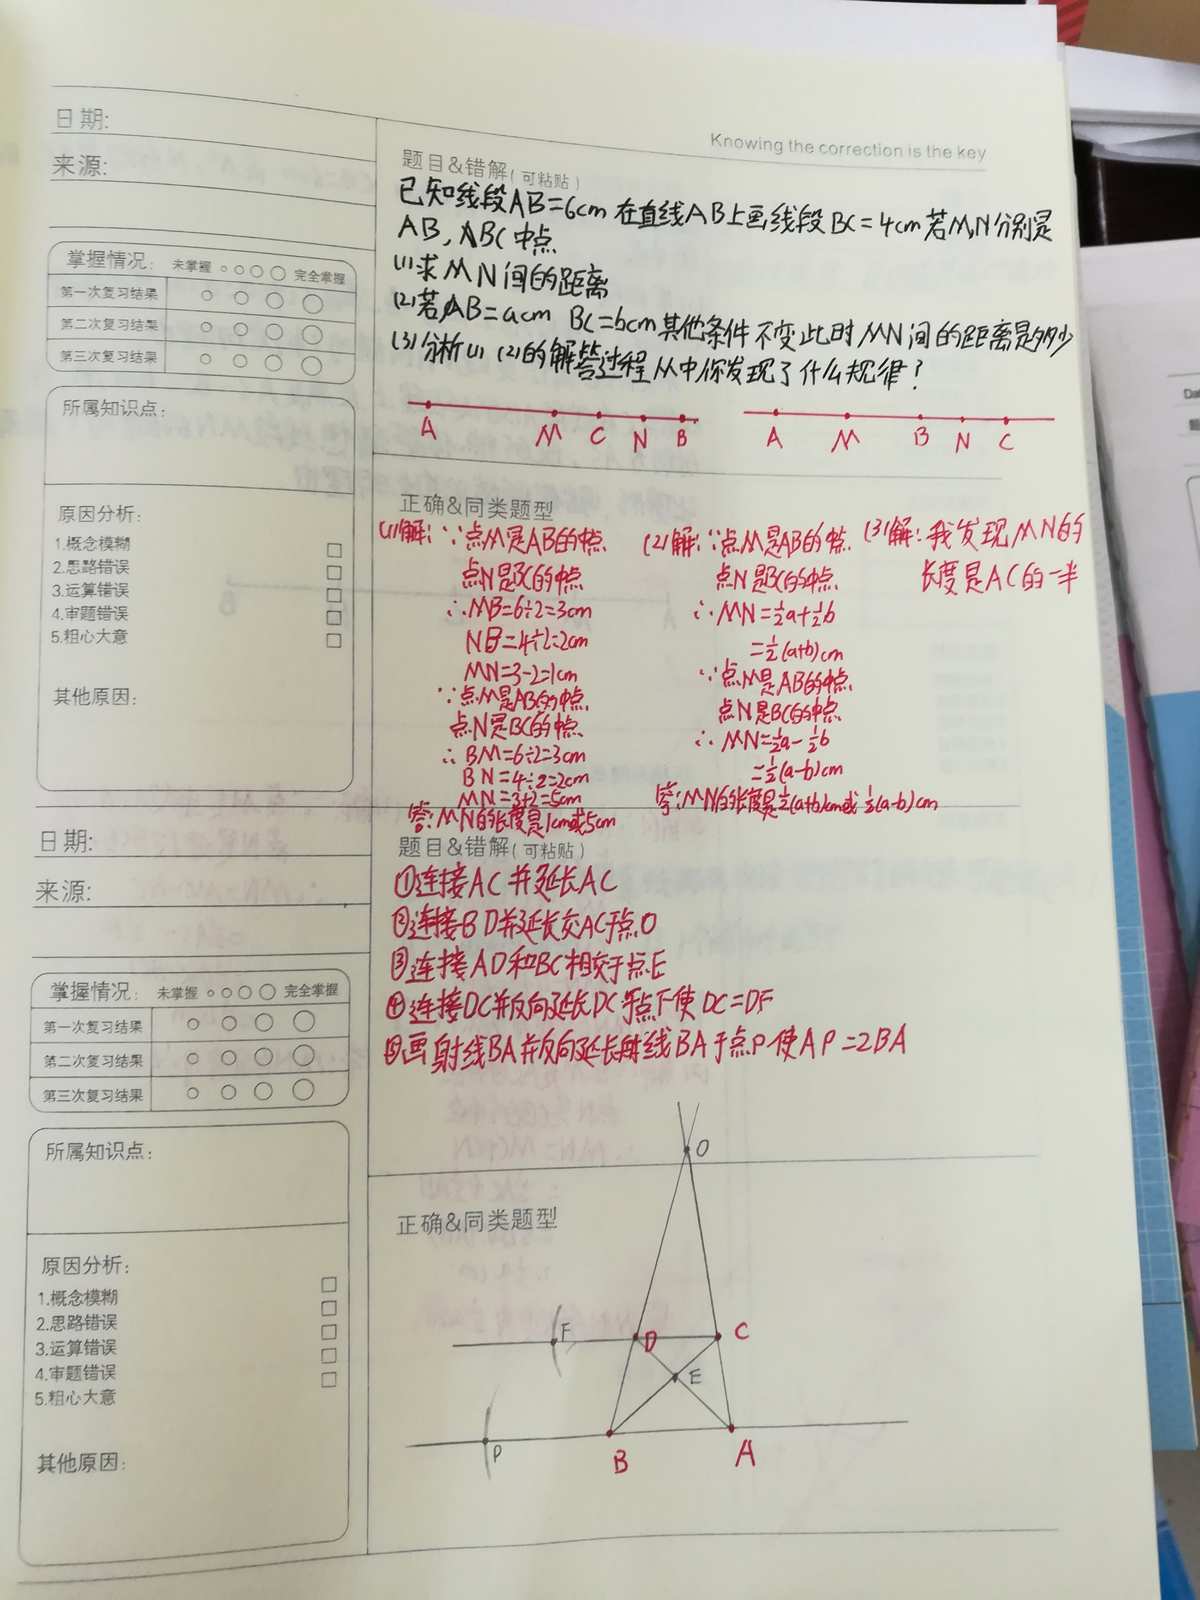 Knowing the correction is the key
日期:
来源:
掌握情况: 未掌握 完全掌握
第一次复习结果
第二次复习结果
第三次复习结果
所属知识点:
原因分析:
1.概念模糊
2.思路错误
3.运算错误
4.审题错误
5.粗心大意
其他原因:
题目&错解(可粘贴)
已知线段AB=6cm在直线AB上画线段BC=4cm若M,N分别是
AB,BC中点
(1)求MN间的距离
(2)若AB=acm BC=bcm其他条件不变此时MN间的距离是多少
(3)分析(1)(2)的解答过程从中你发现了什么规律?
A M C N B
A M B N C
正确&同类题型
(1)解:∵点M是AB的中点
点N是BC的中点
∴MB=6÷2=3cm
NB=4÷2=2cm
MN=3-2=1cm
∵点M是AB的中点
点N是BC的中点
∴BM=6÷2=3cm
BN=4÷2=2cm
MN=3+2=5cm
答:MN的长度是1cm或5cm
(2)解:∵点M是AB的中点
点N是BC的中点
∴MN=½a+½b
=½(a+b)cm
∵点M是AB的中点
点N是BC的中点
∴MN=½a-½b
=½(a-b)cm
答:MN的长度是½(a+b)cm或½(a-b)cm
(3)解:我发现MN的
长度是AC的一半
日期:
来源:
掌握情况: 未掌握 完全掌握
第一次复习结果
第二次复习结果
第三次复习结果
所属知识点:
原因分析:
1.概念模糊
2.思路错误
3.运算错误
4.审题错误
5.粗心大意
其他原因:
题目&错解(可粘贴)
①连接AC并延长AC
②连接BD并延长交AC于点O
③连接AD和BC相交于点E
④连接DC并反向延长DC于点F使DC=DF
⑤画射线BA并反向延长射线BA于点P使AP=2BA
正确&同类题型
O
F D C
E
P B A